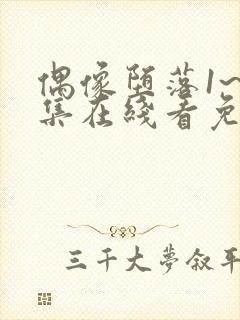 偶像堕落1~
集在线看免
三千大梦叙平